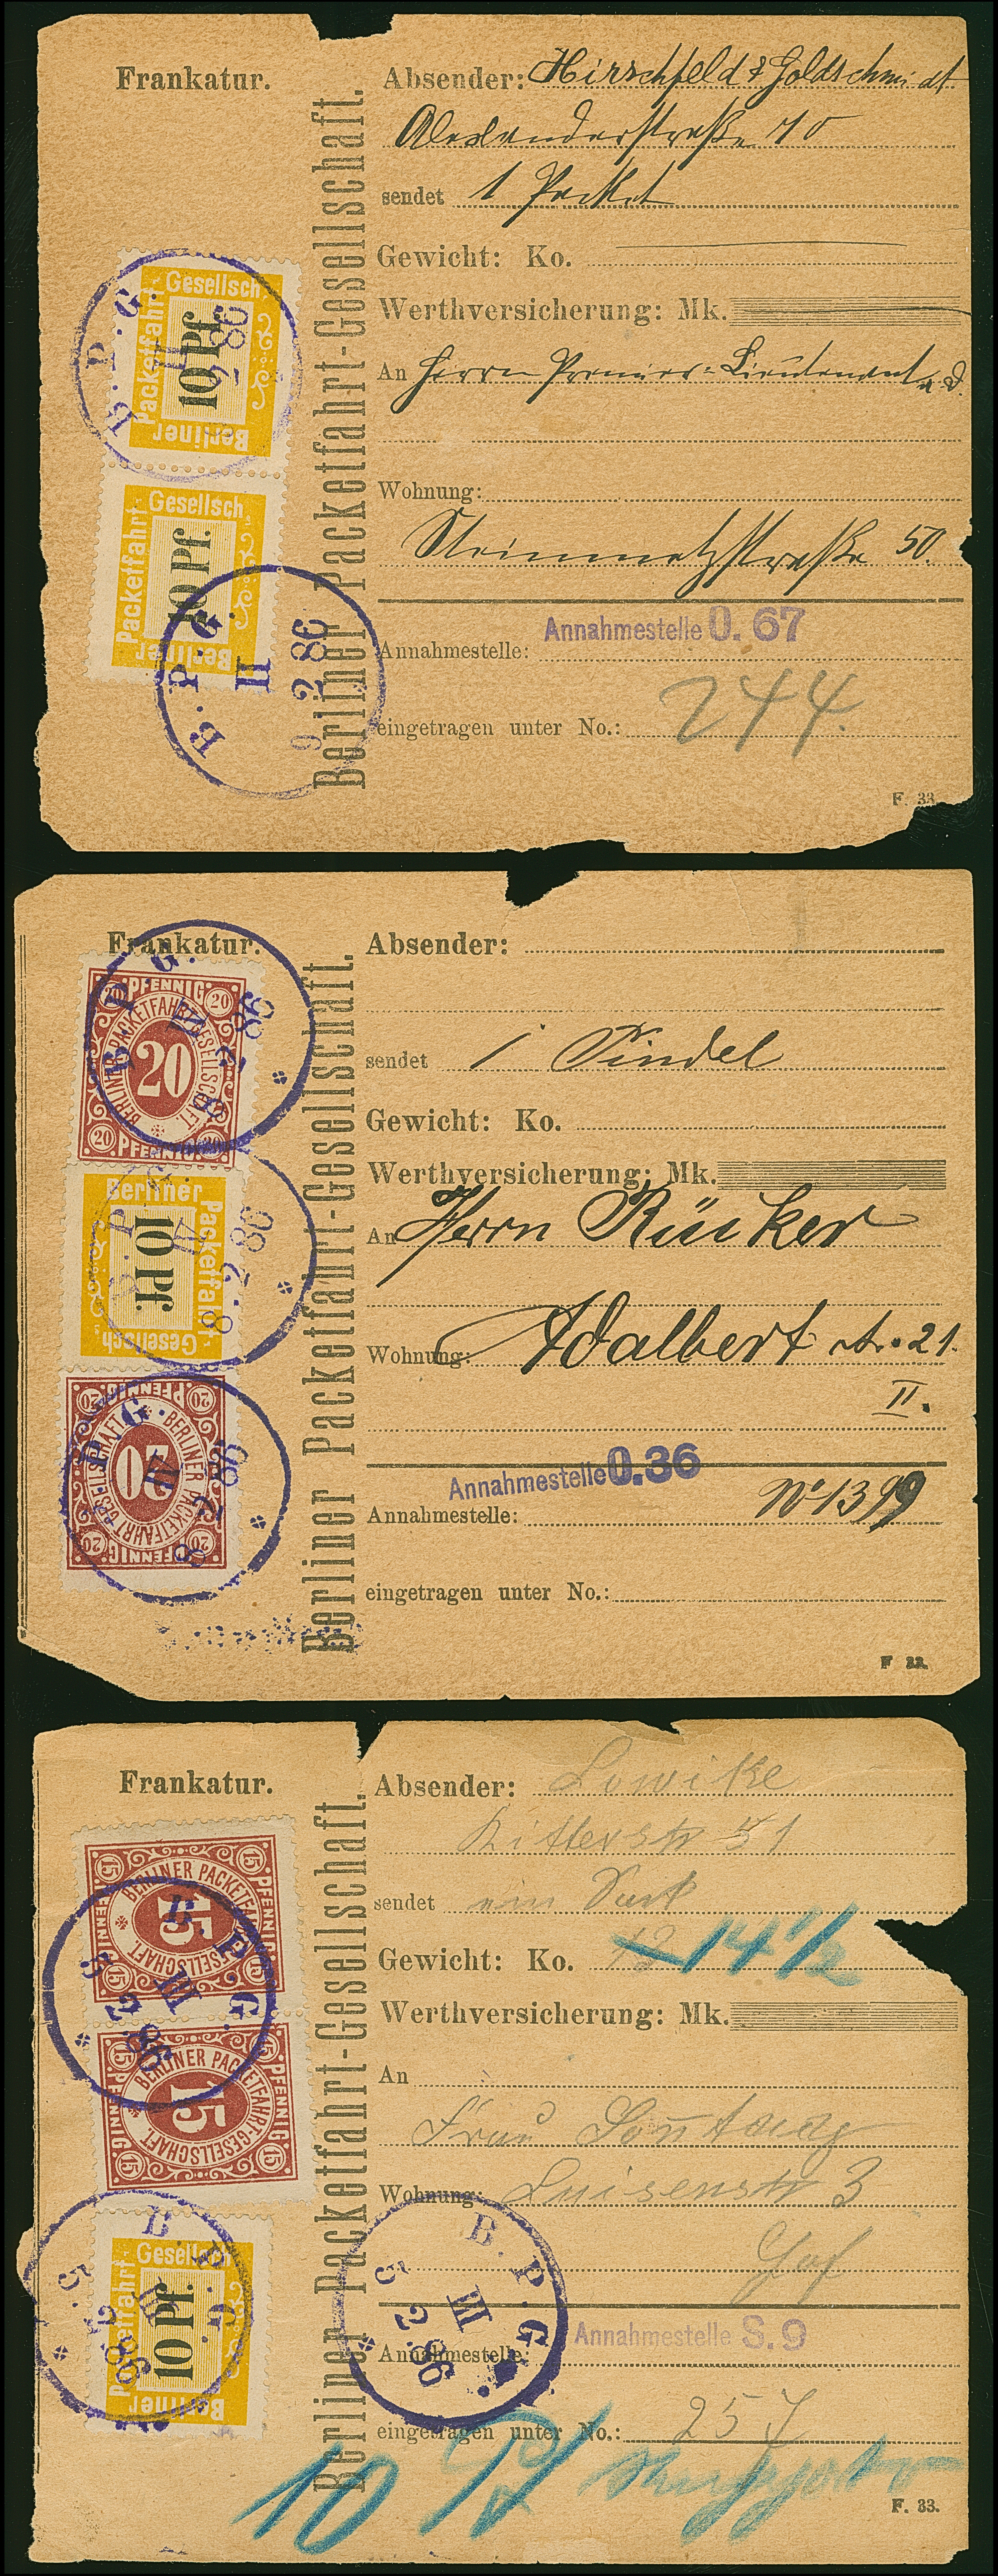 Frankatur.
Berliner Packetfahrt-Gesellschaft.
Absender: Hirschfeld & Goldschmidt
Alexanderstraße 70
sendet 1 Packet
Gewicht: Ko.
Werthversicherung: Mk.
An Herrn Premier-Lieutenant a.D.
Wohnung:
Steinmetzstraße 50.
Annahmestelle O. 67
Annahmestelle:
eingetragen unter No.: 244.
F. 33.
Berliner Packetfahrt-Gesellsch.
10 Pf.
B.P.G.
2 86
Berliner Packetfahrt-Gesellsch.
10 Pf.
B.P.G.
II
9 2 86
Frankatur.
Berliner Packetfahrt-Gesellschaft.
Absender:
sendet 1
Gewicht: Ko.
Werthversicherung: Mk.
An Herrn Rücker
Wohnung: Adalbert str. 21.
II.
Annahmestelle O.36
Annahmestelle: No 1399
eingetragen unter No.:
F 33.
20 PFENNIG 20
BERLINER PACKETFAHRT-GESELLSCHAFT.
20
20 PFENNIG 20
B.P.G.
III
8 2 86
Berliner Packetfahrt-Gesellsch.
10 Pf.
B.P.G.
IV
8.2 86
20 PFENNIG 20
BERLINER PACKETFAHRT-GESELLSCHAFT
20
20 PFENNIG 20
B.P.G.
8 2 86
Frankatur.
Berliner Packetfahrt-Gesellschaft.
Absender: Lowitke
Ritterstr 51
sendet ein
Gewicht: Ko. 13 14 1/2
Werthversicherung: Mk.
An
Frau Sontag
Wohnung: Luisenstr 3
Annahmestelle S. 9
Annahmestelle:
eingetragen unter No.: 257
10
F. 33.
15 PFENNIG 15
BERLINER PACKETFAHRT-GESELLSCHAFT
15
15 PFENNIG 15
B.P.G.
III
5 2 86
15 PFENNIG 15
BERLINER PACKETFAHRT-GESELLSCHAFT
15
15 PFENNIG 15
Berliner Packetfahrt-Gesellsch
10 Pf.
B.P.G.
III
5 2 86
B.P.G.
III
5 2 86